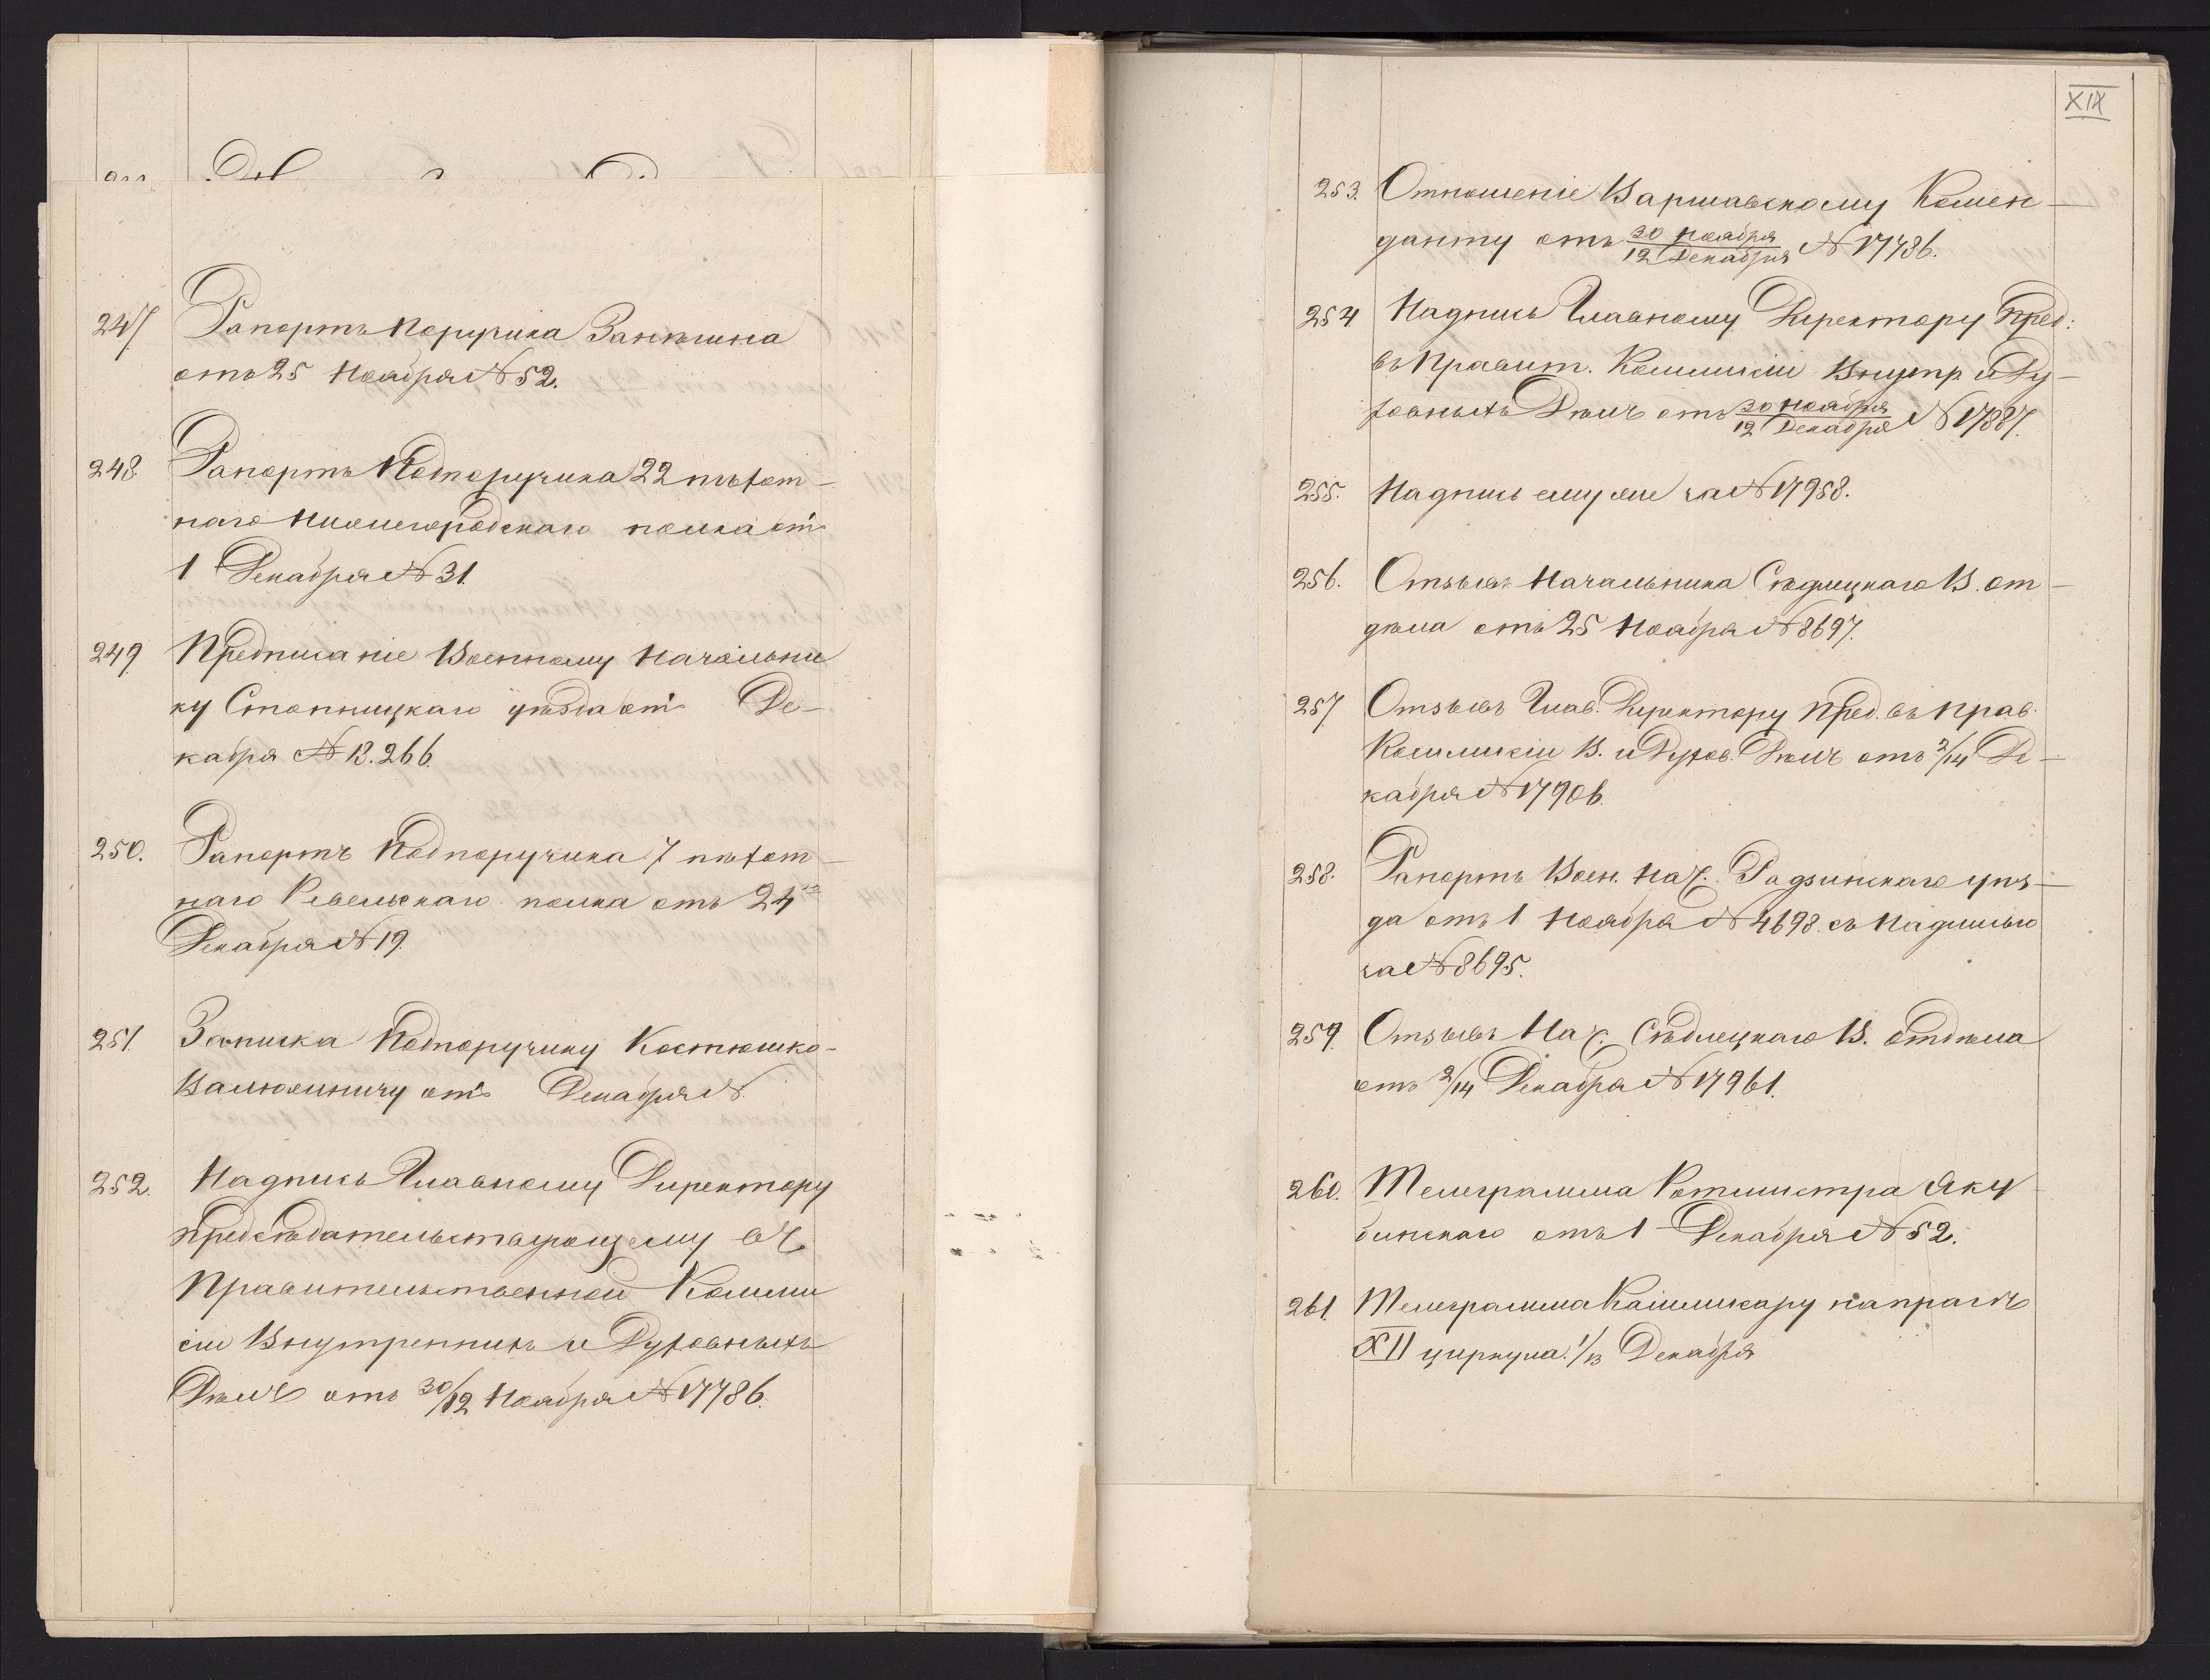 247. Рапортъ Поручика Заньшина
отъ 25 Ноября № 52.
248. Рапортъ Подпоручика 22 пѣхот-
наго Нижегородскаго полка отъ
1 Декабря № 31.
249. Предписаніе Военному Начальни
ку Стопницкаго уѣзда отъ Де-
кабря № 13.266.
250. Рапортъ Подпоручика 7 пѣхот-
наго Ревельскаго полка отъ 24го
Декабря № 19.
251. Записка Подпоручику Костюшко-
Валюжиничу отъ Декабря №.
252. Надпись Главному Директору
Предсѣдательствующему въ
Правительственной Комми
сіи Внутреннихъ и Духовныхъ
Дѣлъ отъ 30/12 Ноября № 17786.
XIX
253. Отношеніе Варшавскому Комен-
данту отъ 30 ноября/12 Декабря № 17486.
254 Надпись Главному Директору Пред:
въ Правит. Коммисіи Внутр и Ду-
ховныхъ Дѣлъ отъ 30 ноября/12 Декабря № 17887.
255. Надпись ему же за № 17958.
256. Отзывъ Начальника Сѣдлецкаго В. от-
дѣла отъ 25 Ноября № 8697.
257 Отзывъ Глав. Директору Пред. въ Прав.
Коммисіи В. и Духов. Дѣлъ отъ 2/14 Де-
кабря № 17906.
258. Рапортъ Воен. Нач. Радзинскаго уѣз-
да отъ 1 Ноября № 4698. съ Надписью
за № 8695.
259. Отзывъ Нач. Сѣдлецкаго В. отдѣла
отъ 2/14 Декабря № 17961.
260. Телеграмма Ротмистра Яку
бинскаго отъ 1 Декабря № 52.
261. Телеграмма Коммисару на прагѣ
XII циркула. 1/13 Декабря